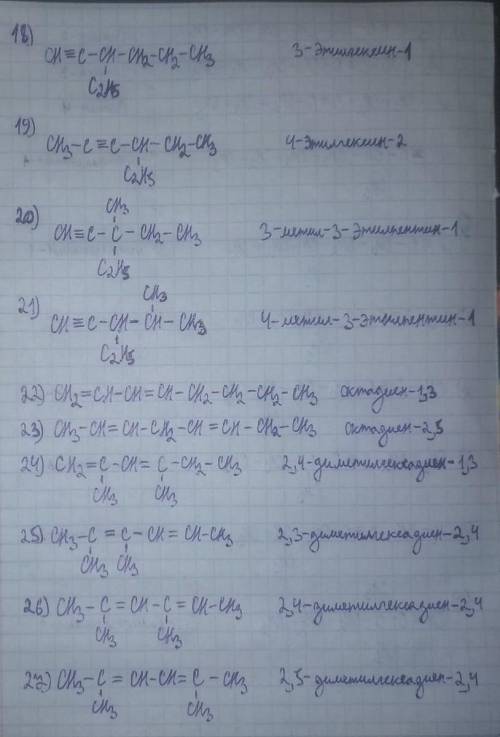 18) CH≡C-CH-CH2-CH2-CH3 3-этилгексин-1
C2H5
19) CH3-C≡C-CH-CH2-CH3 4-этилгексин-2
C2H5
CH3
20) CH≡C-C-CH2-CH3 3-метил-3-этилпентин-1
C2H5
CH3
21) CH≡C-CH-CH-CH3 4-метил-3-этилпентин-1
C2H5
22) CH2=CH-CH=CH-CH2-CH2-CH2-CH3 октадиен-1,3
23) CH3-CH=CH-CH2-CH=CH-CH2-CH3 октадиен-2,5
24) CH2=C-CH=C-CH2-CH3 2,4-диметилгексадиен-1,3
CH3 CH3
25) CH3-C=C-CH=CH-CH3 2,3-диметилгексадиен-2,4
CH3 CH3
26) CH3-C=CH-C=CH-CH3 2,4-диметилгексадиен-2,4
CH3 CH3
27) CH3-C=CH-CH=C-CH3 2,5-диметилгексадиен-2,4
CH3 CH3